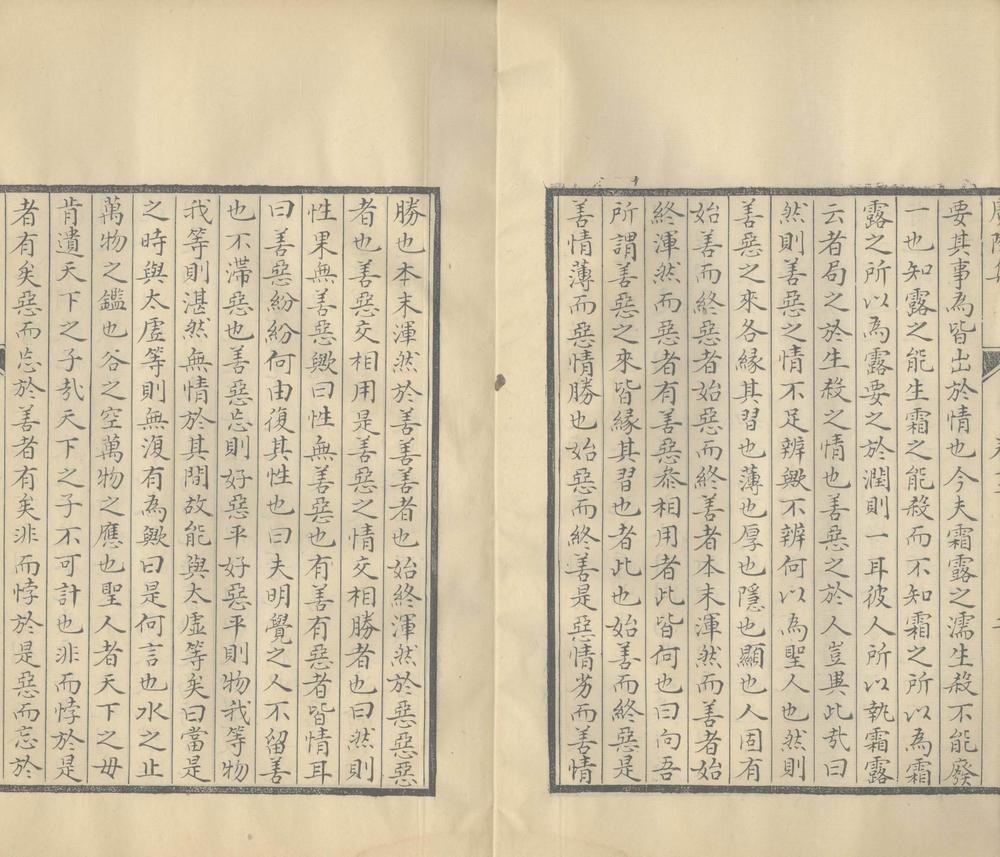 要其事為皆出於情也今夫霜露之濡生殺不能廢
一也知露之能生霜之能殺而不知霜之所以為霜
露之所以為露要之於潤則一耳彼人所以執霜露
云者局之於生殺之情也善惡之於人豈異此㢤曰
然則善惡之情不足辨歟不辨何以為聖人也然則
善惡之來各緣其習也薄也厚也隱也顯也人固有
始善而終惡者始惡而終善者本末渾然而善者始
終渾然而惡者有善惡叅相用者此皆何也曰向吾
所謂善惡之來皆緣其習也者此也始善而終惡是
善情薄而惡情勝也始惡而終善是惡情劣而善情
勝也本末渾然於善善善者也始終渾然於惡惡惡
者也善惡交相用是善惡之情交相勝者也曰然則
性果無善惡歟曰性無善惡也有善有惡者皆情耳
曰善惡紛紛何由復其性也曰夫明覺之人不留善
也不滯惡也善惡忘則好惡平好惡平則物我等物
我等則湛然無情於其間故能與太虛等矣曰當是
之時與太虛等則無復有為歟曰是何言也水之止
萬物之鑑也谷之空萬物之應也聖人者天下之毋
肯遺天下之子㢤天下之子不可計也非而悖於是
者有矣惡而忘於善者有矣非而悖於是惡而忘於